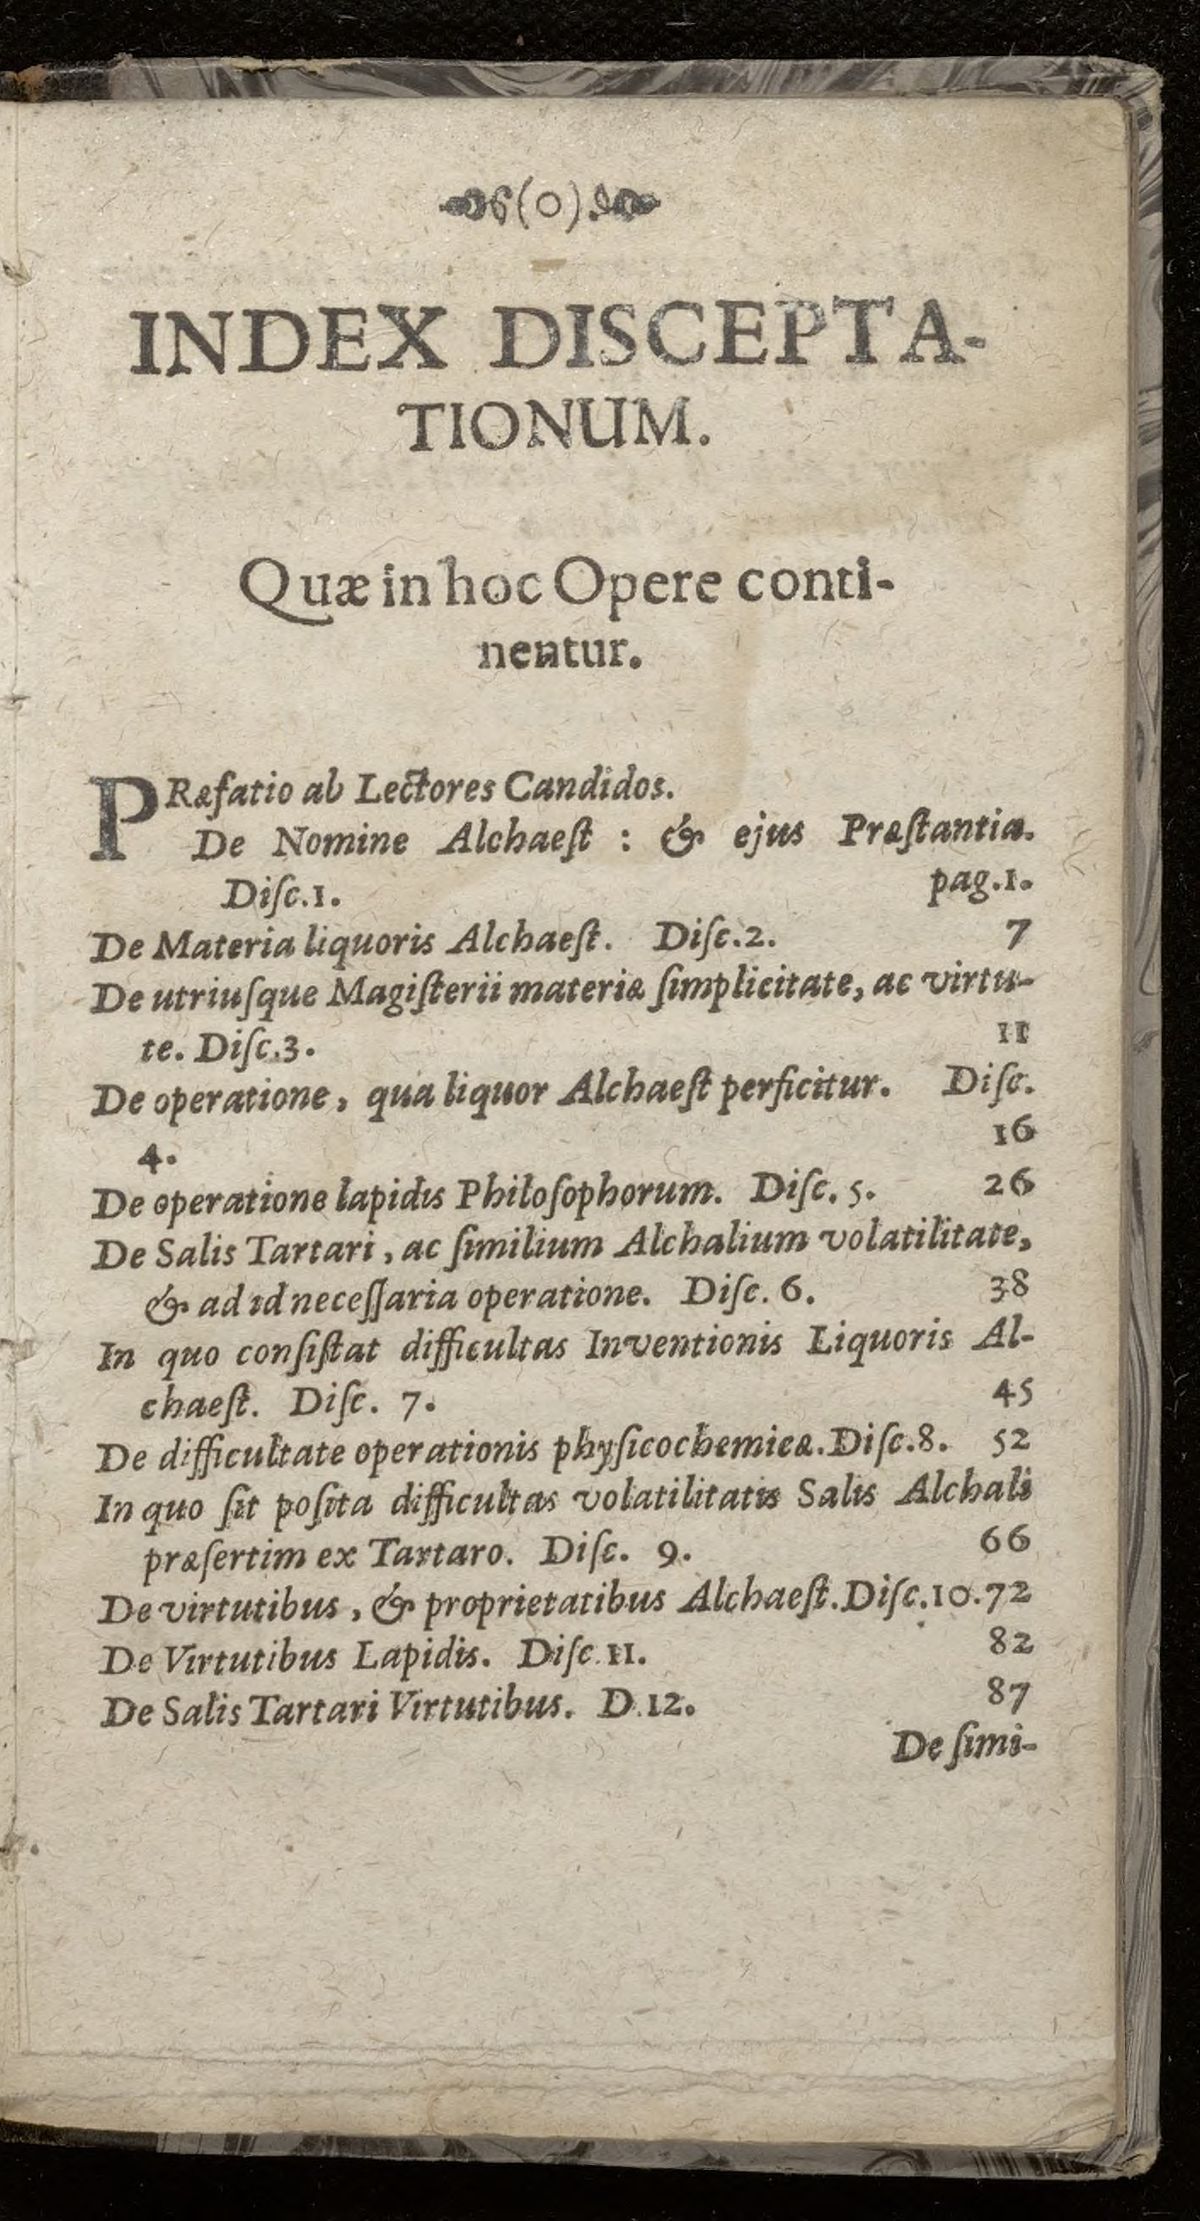 (O)
INDEX DISCEPTA-
TIONUM.
Quæ in hoc Opere conti-
nentur.
PRæfatio ab Lectores Candidos.
De Nomine Alchaeſt : & ejus Præſtantia.
Diſc.1. pag.1.
De Materia liquoris Alchaeſt. Diſc.2. 7
De utriuſque Magiſterii materiæ ſimplicitate, ac virtu-
te. Diſc.3. 11
De operatione, qua liquor Alchaeſt perficitur. Diſc.
4. 16
De operatione lapidis Philoſophorum. Diſc. 5. 26
De Salis Tartari, ac ſimilium Alchalium volatilitate,
& ad id neceſſaria operatione. Diſc. 6. 38
In quo conſiſtat difficultas Inventionis Liquoris Al-
chaeſt. Diſc. 7. 45
De difficultate operationis phyſicochemicæ. Diſc.8. 52
In quo ſit poſita difficultas volatilitatis Salis Alchali
præſertim ex Tartaro. Diſc. 9. 66
De virtutibus, & proprietatibus Alchaeſt. Diſc.10. 72
De Virtutibus Lapidis. Diſc. 11. 82
De Salis Tartari Virtutibus. D.12. 87
De ſimi-